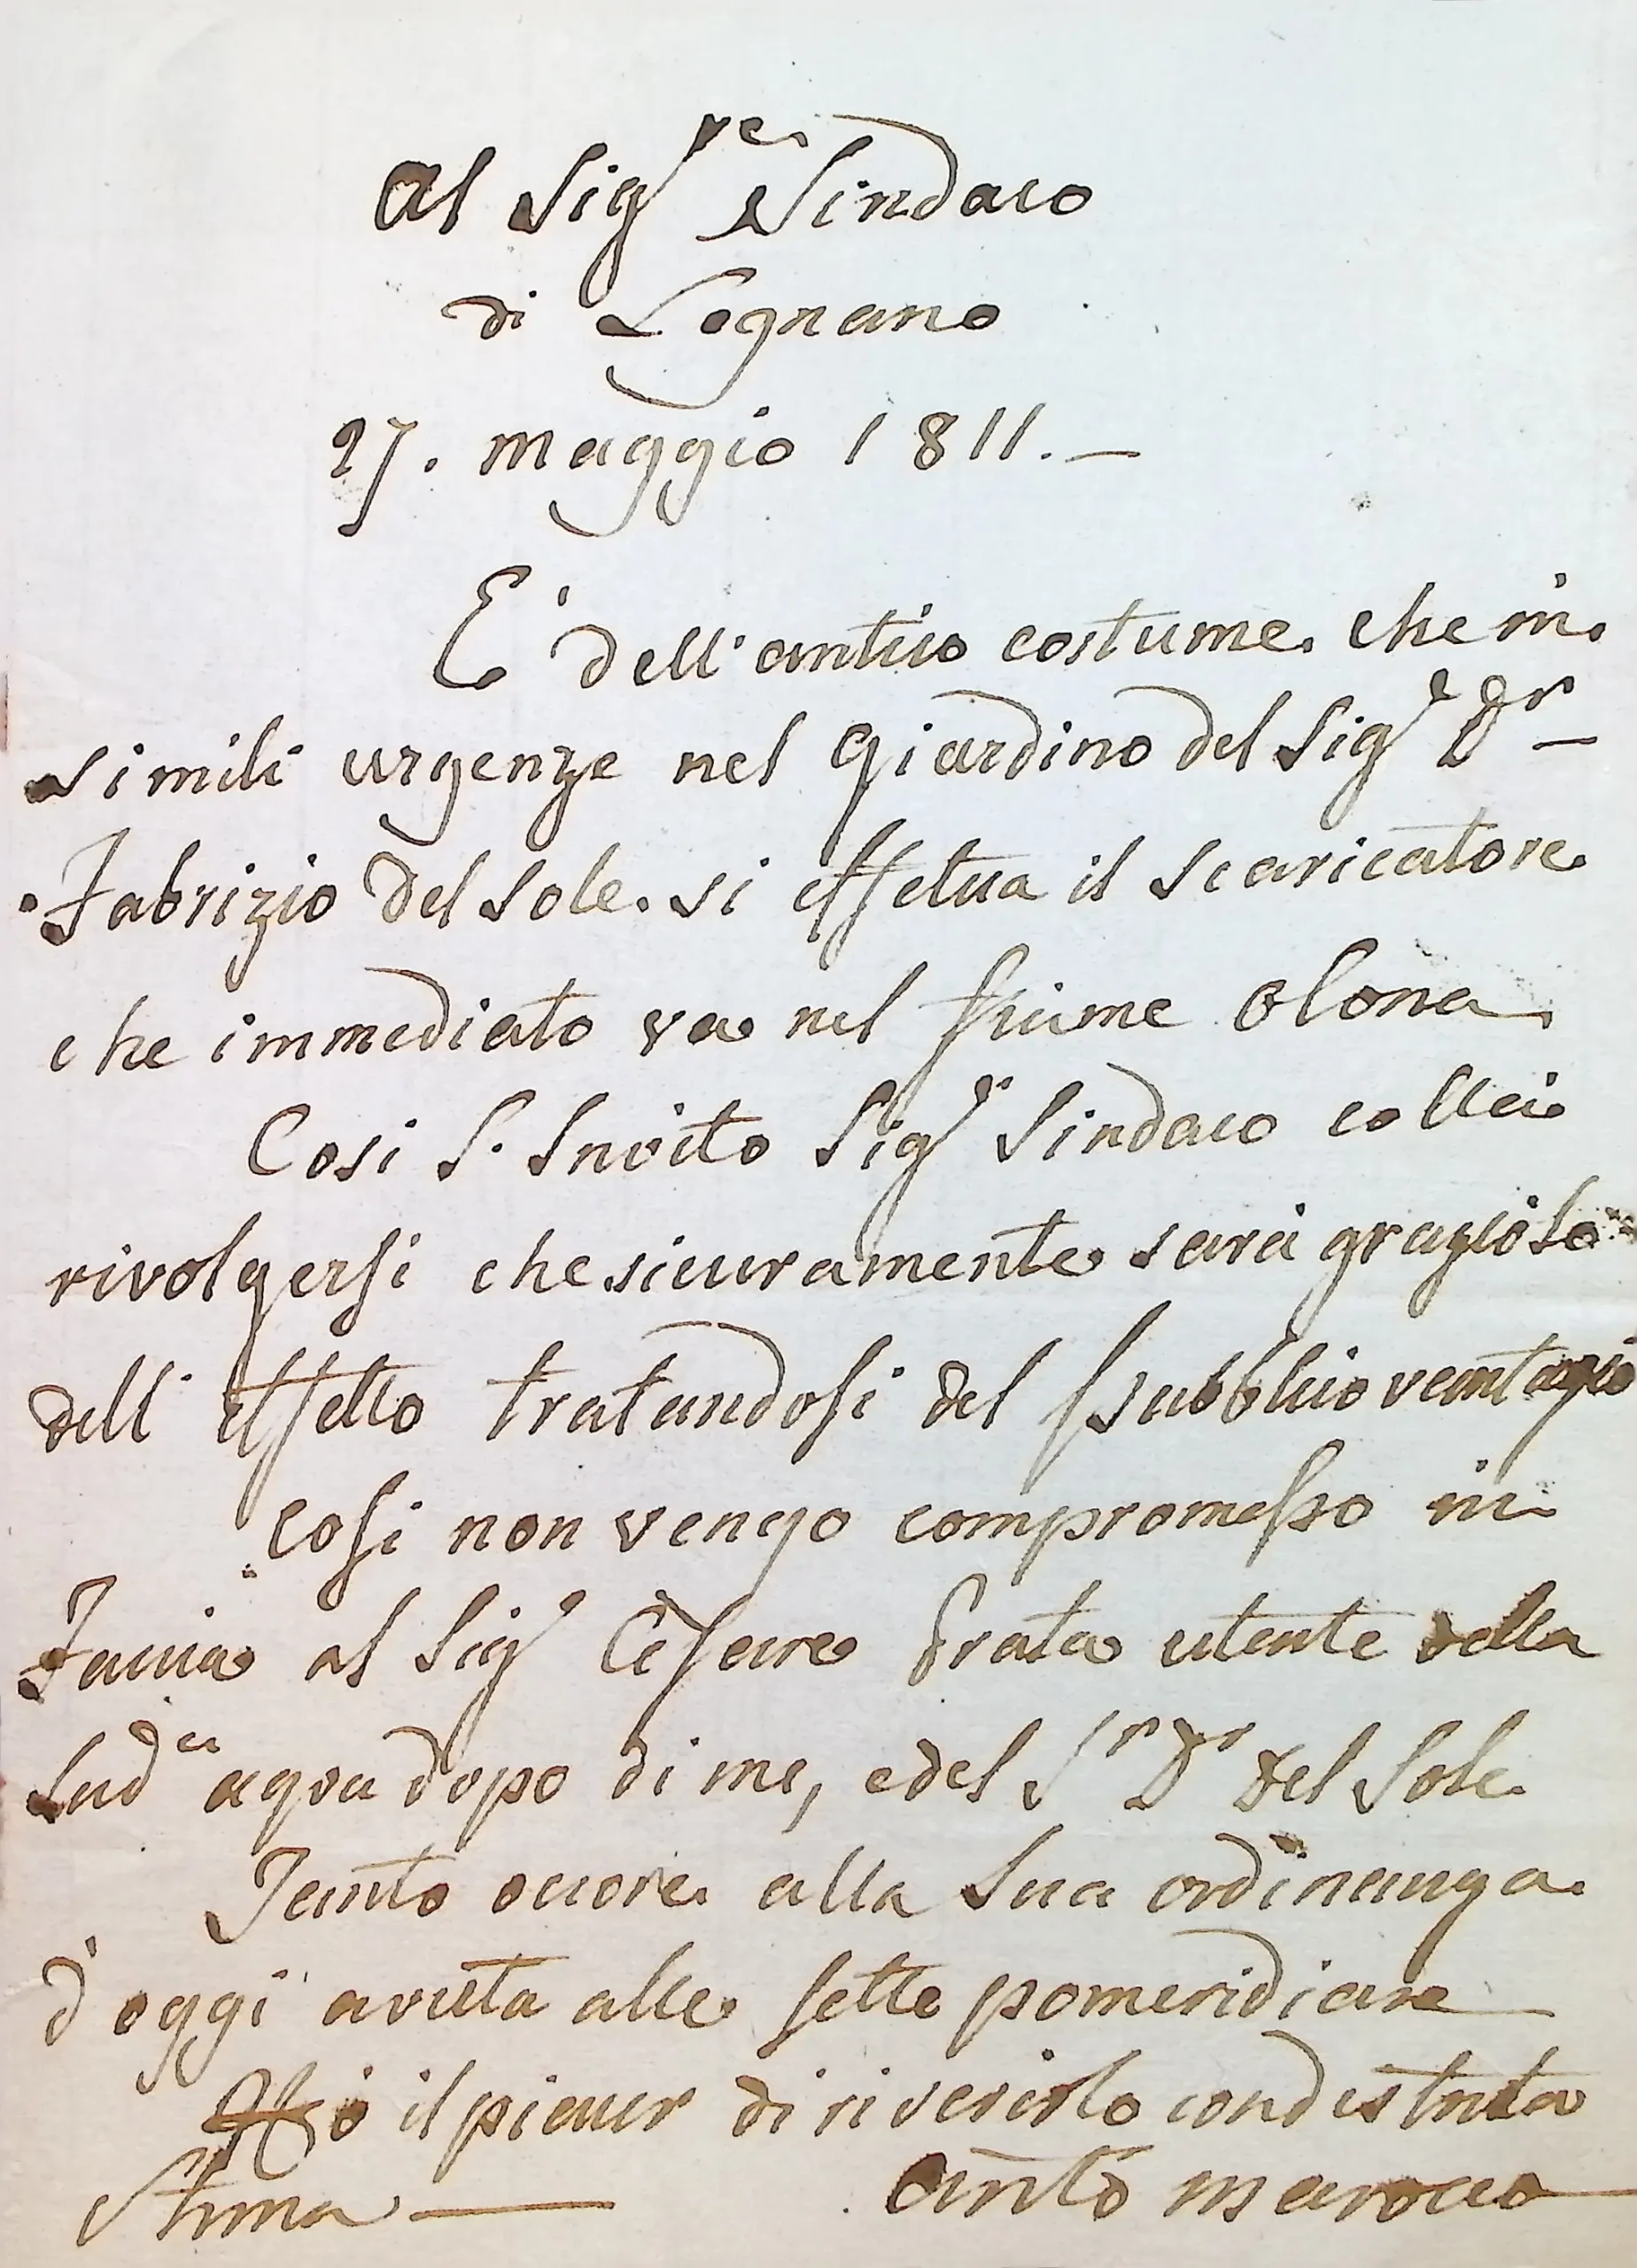 Al Sig.re Sindaco
di Legnano
27. Maggio 1811. —
E' dell'antico costume che in
simili urgenze nel Giardino del Sig.r D.r
Fabrizio Del Sole si effetua il scaricatore
che immediato va nel fiume Olona
Cosi S. Invito Sig.r Sindaco collei
rivolgersi che sicuramente sarà grazioso
dell'effetto tratandosi del pubblico vantagio
Cosi non vengo compromesso in
faccia al Sig.r Cesare Prata utente della
Sud.a aqua dopo di me, e del S.r D.r Del Sole
Tanto occore alla Sua ordinanza
d'oggi avuta alle sette pomeridiane
Hò il piacer di riverirlo con distinta
Stima — Ant.o Marocco